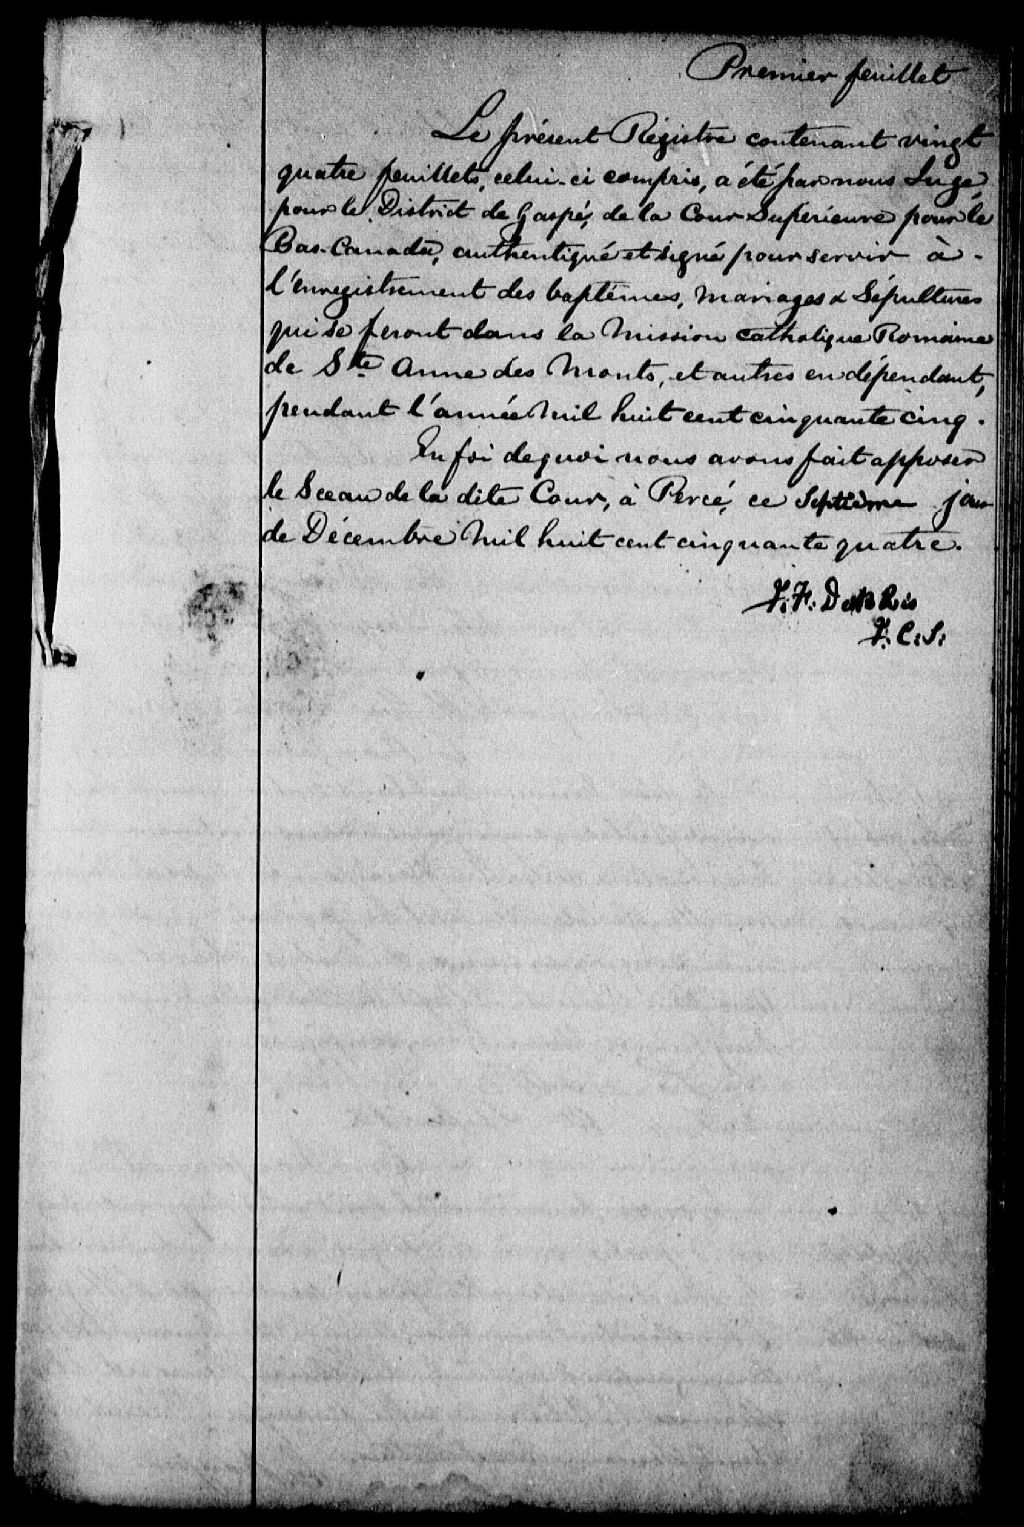 Premier feuillet
Le présent Régistre contenant vingt
quatre feuillets, celui-ci compris, a été par nous Juge,
pour le District de Gaspé, de la Cour Supérieure pour le
Bas-Canada, authentiqué et signé pour servir à -
l'enregistrement des baptêmes, mariages & Sépultures
qui se feront dans la Mission catholique Romaine
de Ste Anne des Monts, et autres en dépendant,
pendant l'année Mil huit cent cinquante cinq.
En foi de quoi nous avons fait apposer
le Sceau de la dite Cour, à Percé, ce Septième jour
de Décembre Mil huit cent cinquante quatre.
J. C. S.